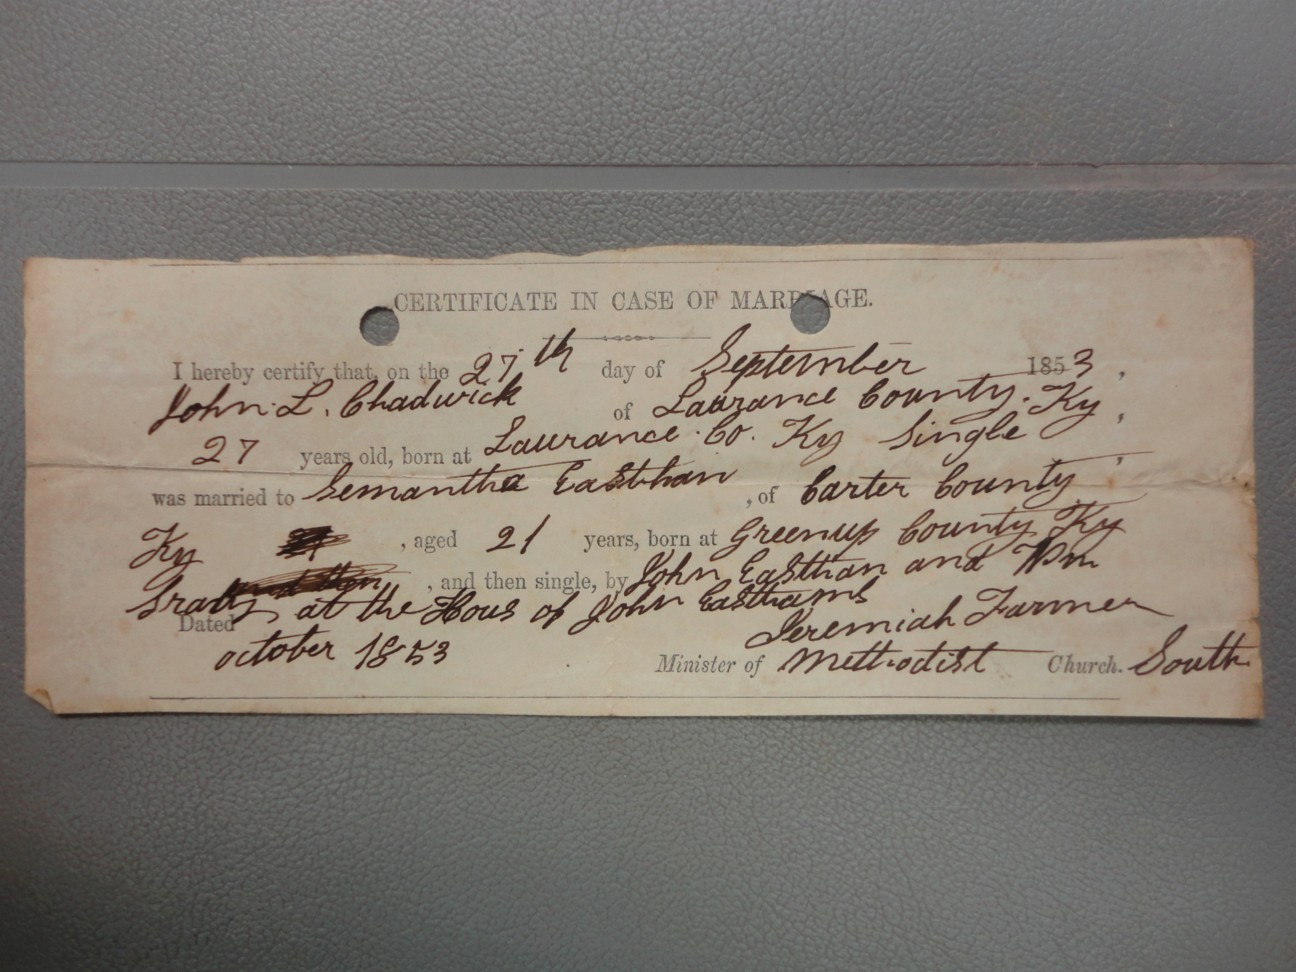 CERTIFICATE IN CASE OF MARRIAGE.
I hereby certify, that, on the 27th day of September 1853,
John. L. Chadwick of Laurance County. Ky,
27 years old, born at Laurance. Co. Ky Single,
was married to Semantha Easthan, of Carter County
Ky, aged 21 years, born at Greenup County Ky
, and then single, by John Easthan and Wm
at the Hous of John Easthams
Dated Jeremiah Farmer
october 1853 Minister of Methodist Church. South